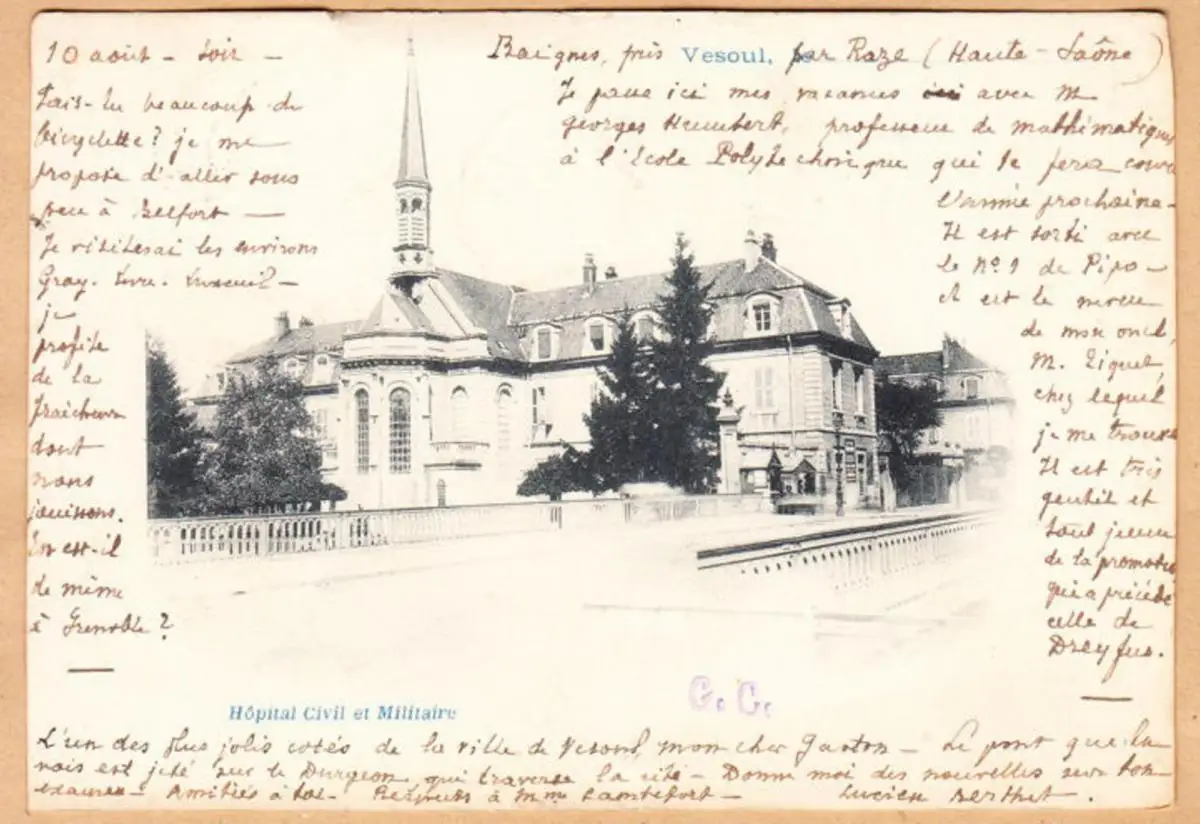 Baignes, près Vesoul, par Raze (Haute-Saône)
Je passe ici mes vacances avec M.
Georges Humbert, professeur de mathématiques
à l'Ecole Polytechnique qui te fera cours
l'année prochaine -
Il est sorti avec
le No. 1 de Pipo -
il est le neveu
de mon oncle,
M.
chez lequel
je me trouve
Il est très
gentil et
tout jeune
de la promotion
qui a précédé
celle de
Dreyfus.
10 août - Soir -
Fais-tu beaucoup de
bicyclette ? je me
propose d'aller sous
peu à Belfort -
Je visiterai les environs
Gray. Lure. Luxeuil -
je
profite
de la
fraîcheur
dont
nous
jouissons.
En est-il
de même
à Grenoble ?
C. C.
Hôpital Civil et Militaire
L'un des plus jolis cotés de la ville de Vesoul, mon cher Gaston - Le pont que tu
vois est jeté sur le Durgeon qui traverse la cité - Donne moi des nouvelles sur ton
examen - Amitiés à toi - Respects à Mme - Lucien Berthet.